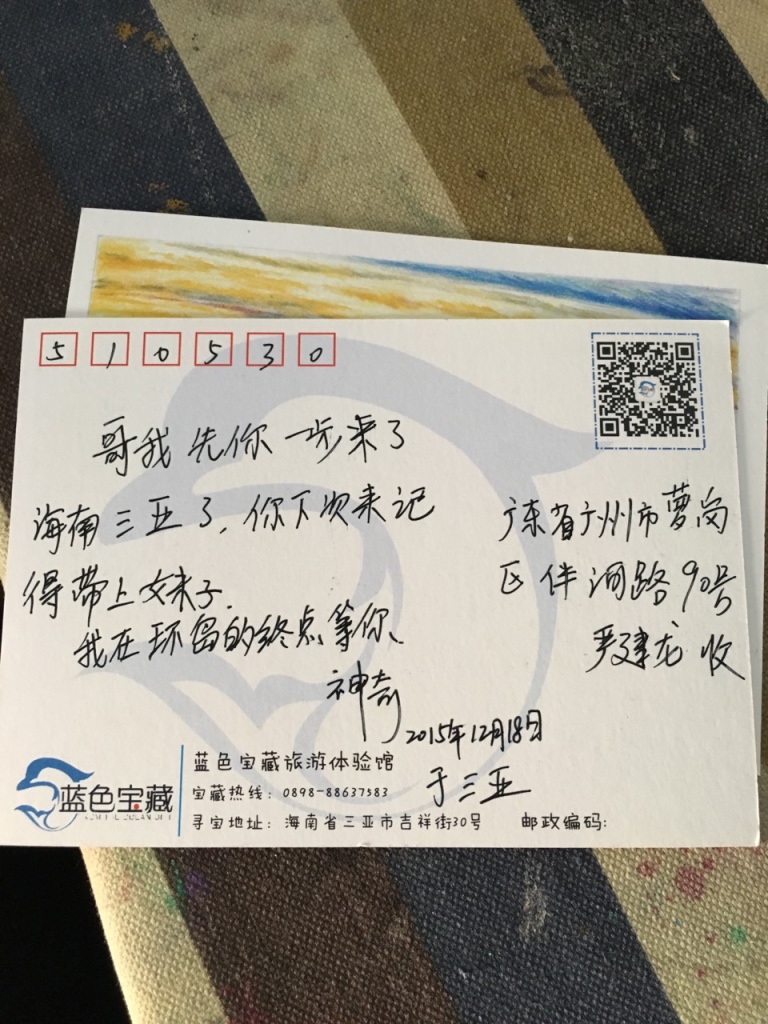 510530
哥我先你一步来了
海南三亚了,你下次来记
得带上妹子.
我在环岛的终点等你、
神奇
2015年12月18日
于三亚
广东省广州市萝岗
区伴河路90号
严建龙 收
蓝色宝藏
蓝色宝藏旅游体验馆
宝藏热线: 0898-88637583
寻宝地址: 海南省三亚市吉祥街30号 邮政编码: